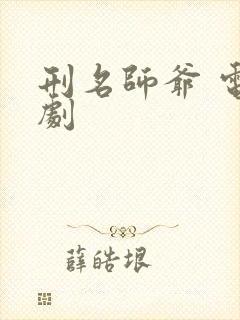 刑名師爺 電
劇
薛皓垠